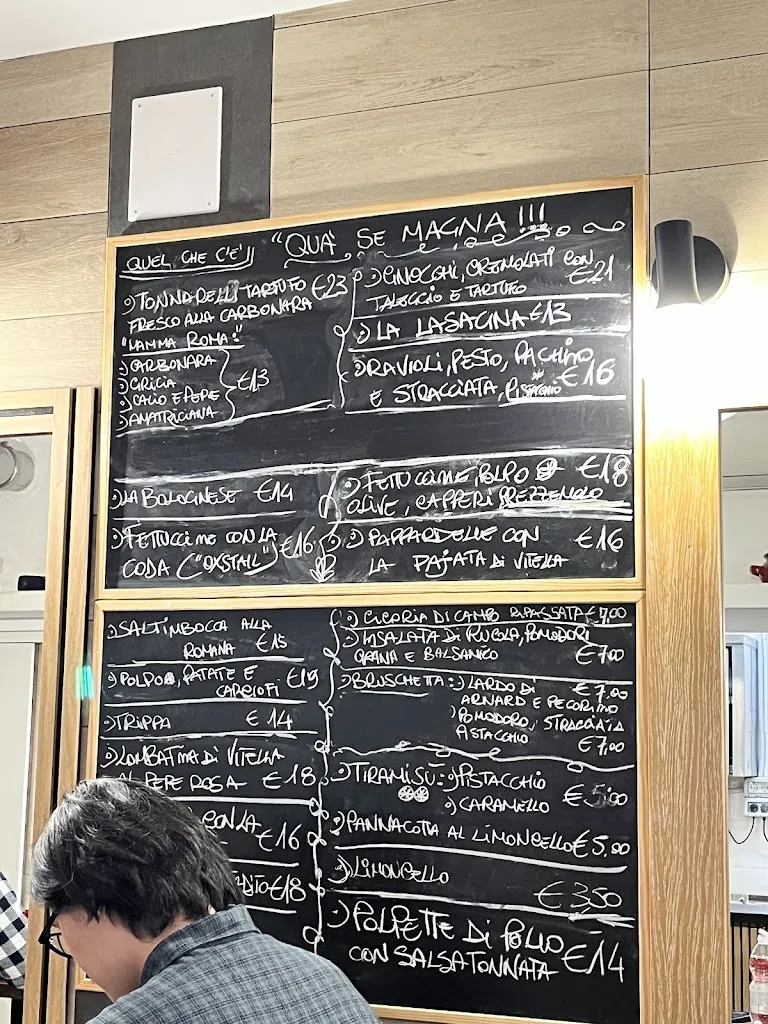 QUEL CHE C'È!!
"QUÀ SE MAGNA!!!
TONNARELLI TARTUFO €23
FRESCO ALLA CARBONARA
"MAMMA ROMA:"
CARBONARA
GRICIA
CACIO E PEPE
AMATRICIANA
€13
GNOCCHI, CREMOLATI CON
TALEGGIO E TARTUFO €21
LA LASAGNA €13
RAVIOLI, PESTO, PACHINO
E STRACCIATA, PISTACCHIO €16
LA BOLOGNESE €14
FETTUCCINE CON LA
CODA ("OXSTAIL") €16
FETTUCCINE, POLPO €18
OLIVE, CAPPERI PREZZEMOLO
PAPPARDELLE CON €16
LA PAJATA DI VITELLA
SALTIMBOCCA ALLA
ROMANA €15
POLPO, PATATE E €19
CARCIOFI
TRIPPA €14
LOMBATINA DI VITELLA
AL PEPE ROSA €18
CON LA
€16
€18
CICORIA DI CAMPO RIPASSATA €7,00
INSALATA DI RUCOLA, POMODORI
GRANA E BALSAMICO €7,00
BRUSCHETTA: LARDO DI €7,00
ARNARD E PECORINO
POMODORO, STRACCIATA
PISTACCHIO €7,00
TIRAMISÙ: PISTACCHIO
CARAMELLO €5,00
PANNACOTTA AL LIMONCELLO €5,00
LIMONCELLO
€3,50
POLPETTE DI POLLO
CON SALSA TONNATA €14